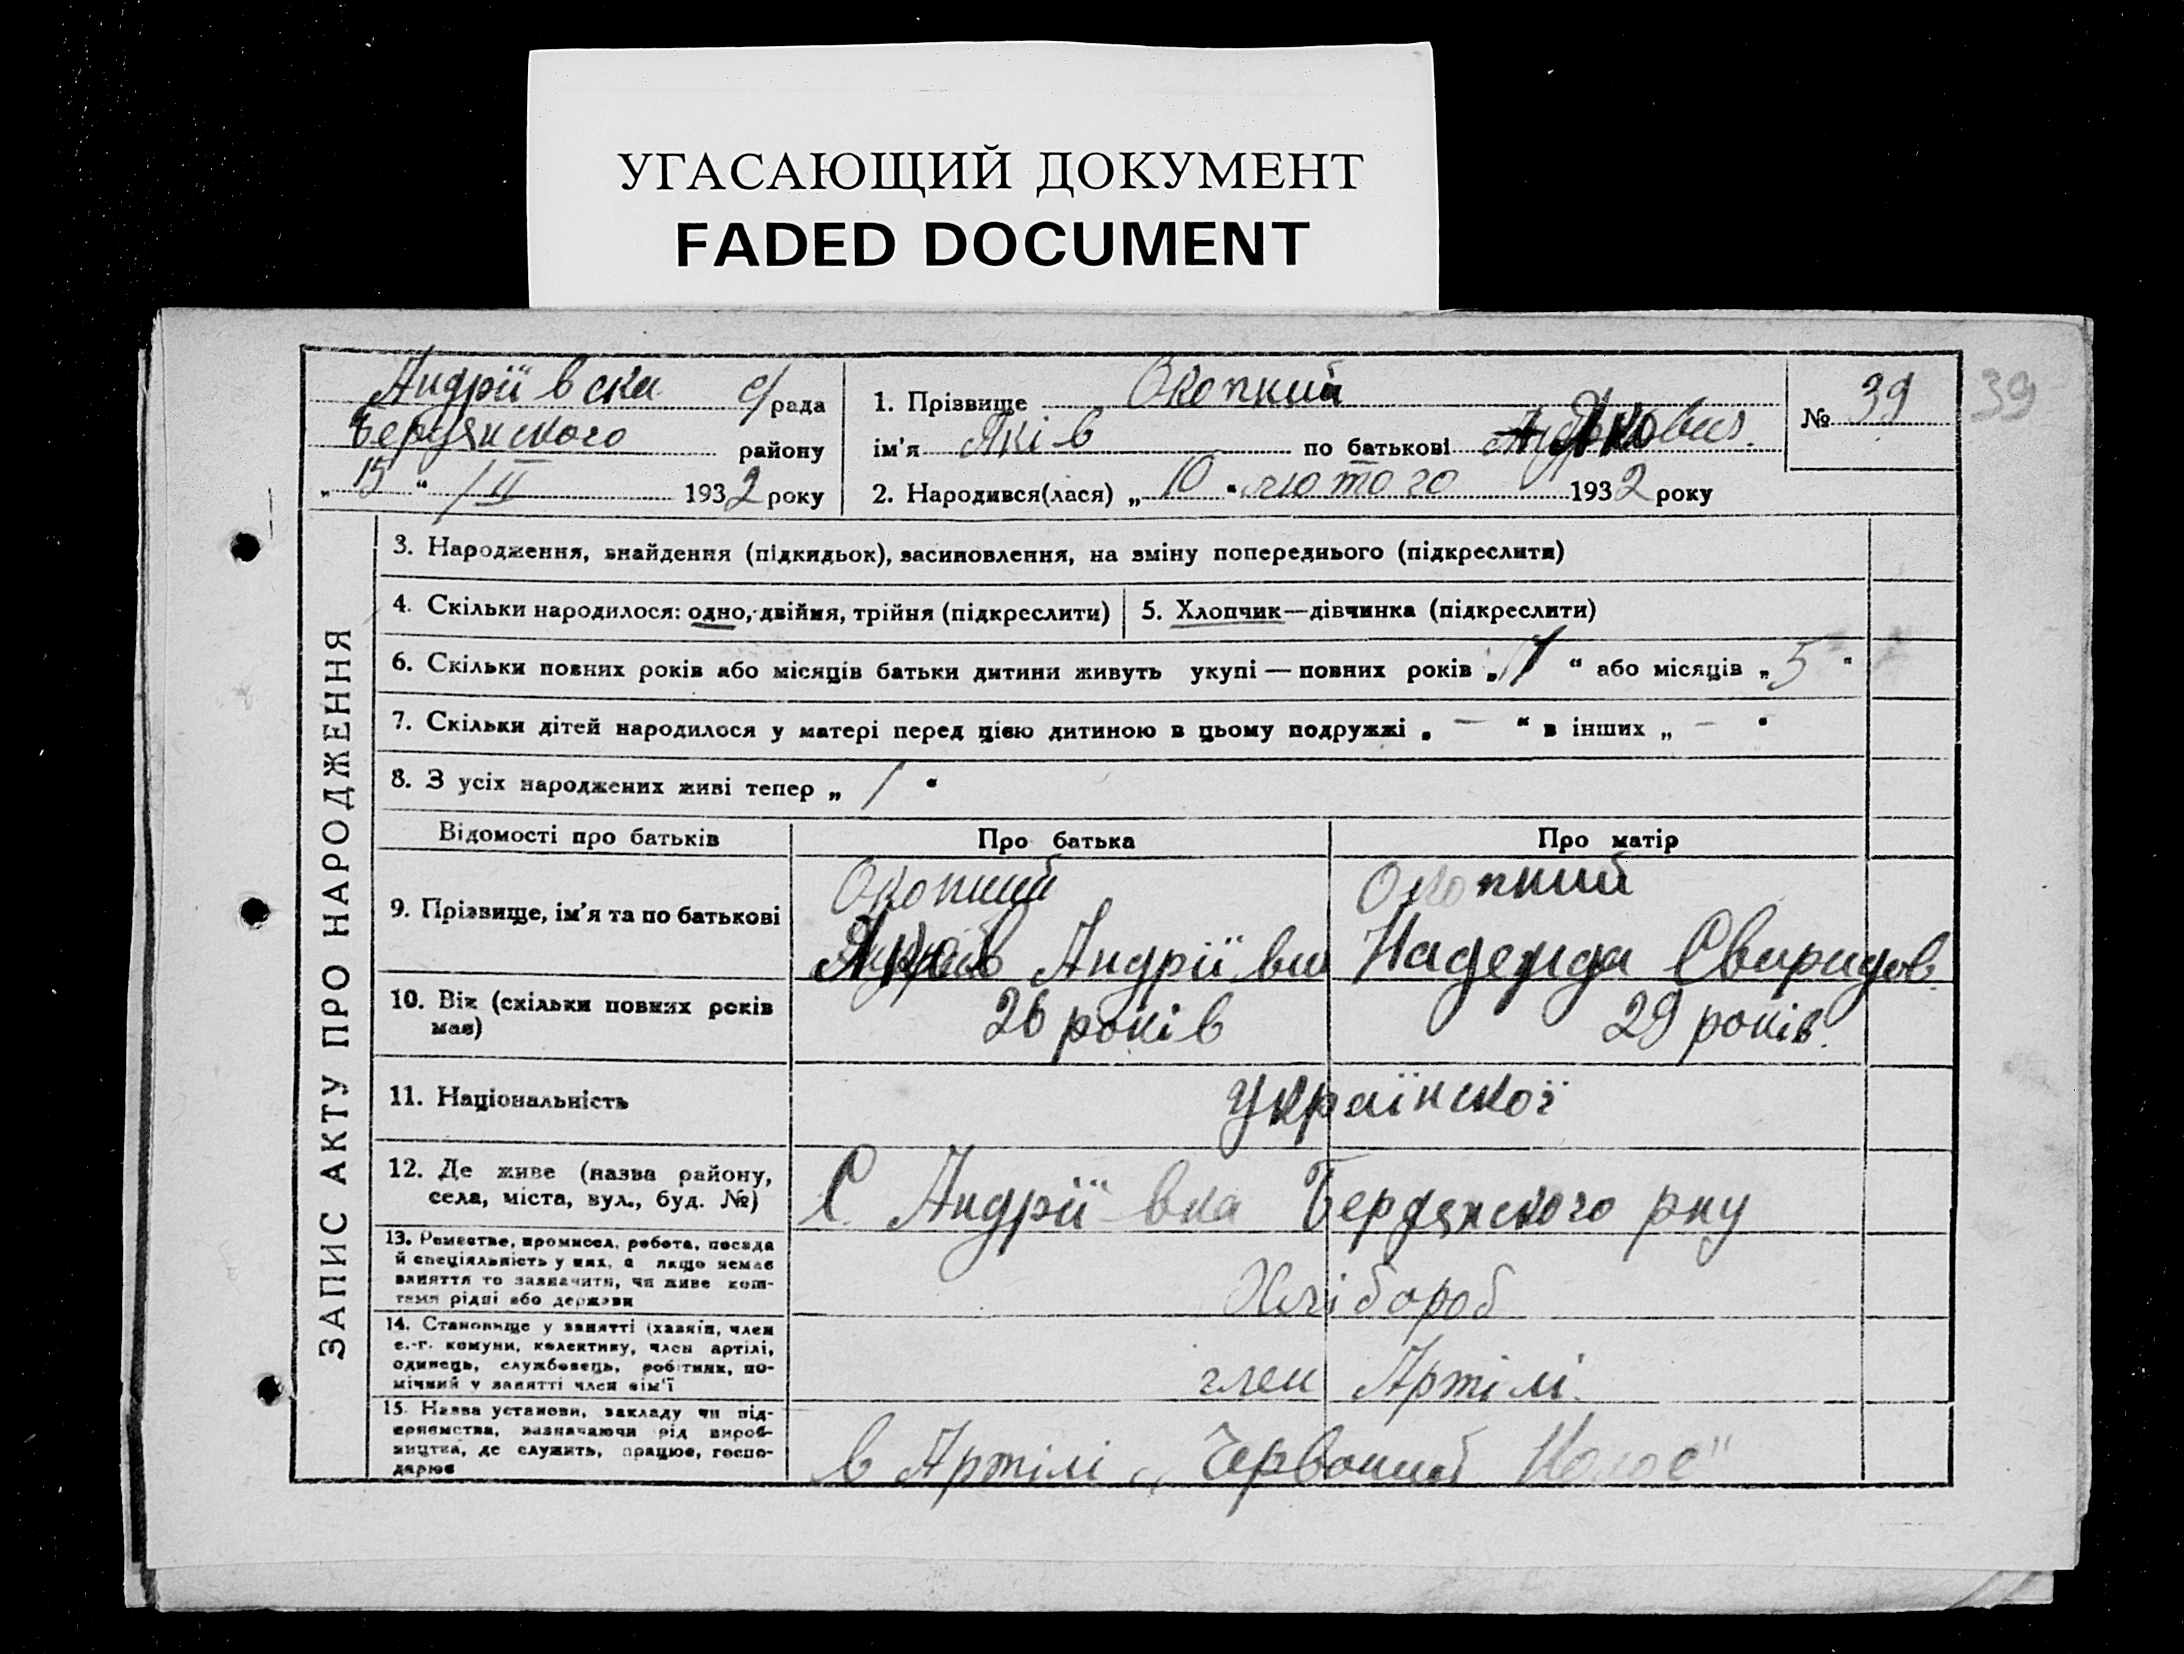 УГАСАЮЩИЙ ДОКУМЕНТ
FADED DOCUMENT
Андріївска с/рада
Бердянского району
„15“ /II 1932 року
1. Прізвище Окопкий
ім'я Яків по батькові Якович
№ 39
39
2. Народився(лася) „10“ лютого 1932 року
ЗАПИС АКТУ ПРО НАРОДЖЕННЯ
3. Народження, знайдення (підкидьок), засиновлення, на зміну попереднього (підкреслити)
4. Скільки народилося: одно, двійня, трійня (підкреслити)
5. Хлопчик—дівчинка (підкреслити)
6. Скільки повних років або місяців батьки дитини живуть укупі — повних років „1“ або місяців „5“
7. Скільки дітей народилося у матері перед цією дитиною в цьому подружжі „—“ в інших „—“
8. З усіх народжених живі тепер „1“
Відомості про батьків Про батька Про матір
9. Прізвище, ім'я та по батькові
Окопкий
Яків Андріївич
Окопкий
Надежда Свиридов.
10. Вік (скільки повних років
має)
26 років
29 років.
11. Національність
Українскої
12. Де живе (назва району,
села, міста, вул., буд. №)
С. Андріївка Бердянского рну
13. Ремество, промисел, робота, посада
й спеціяльність у них, а якщо немає
заняття то зазначити, чи живе кош-
тами рідні або держави
Хлібороб
14. Становище у занятті (хазяїн, член
с.-г. комуни, колективу, член артілі,
одинець, службовець, робітник, по-
мічний у занятті член сім'ї
член Артілі.
15. Назва установи, закладу чи під-
приємства, зазначаючи рід вироб-
ництва, де служить, працює, госпо-
дарює
в Артілі „Червоний Колос"